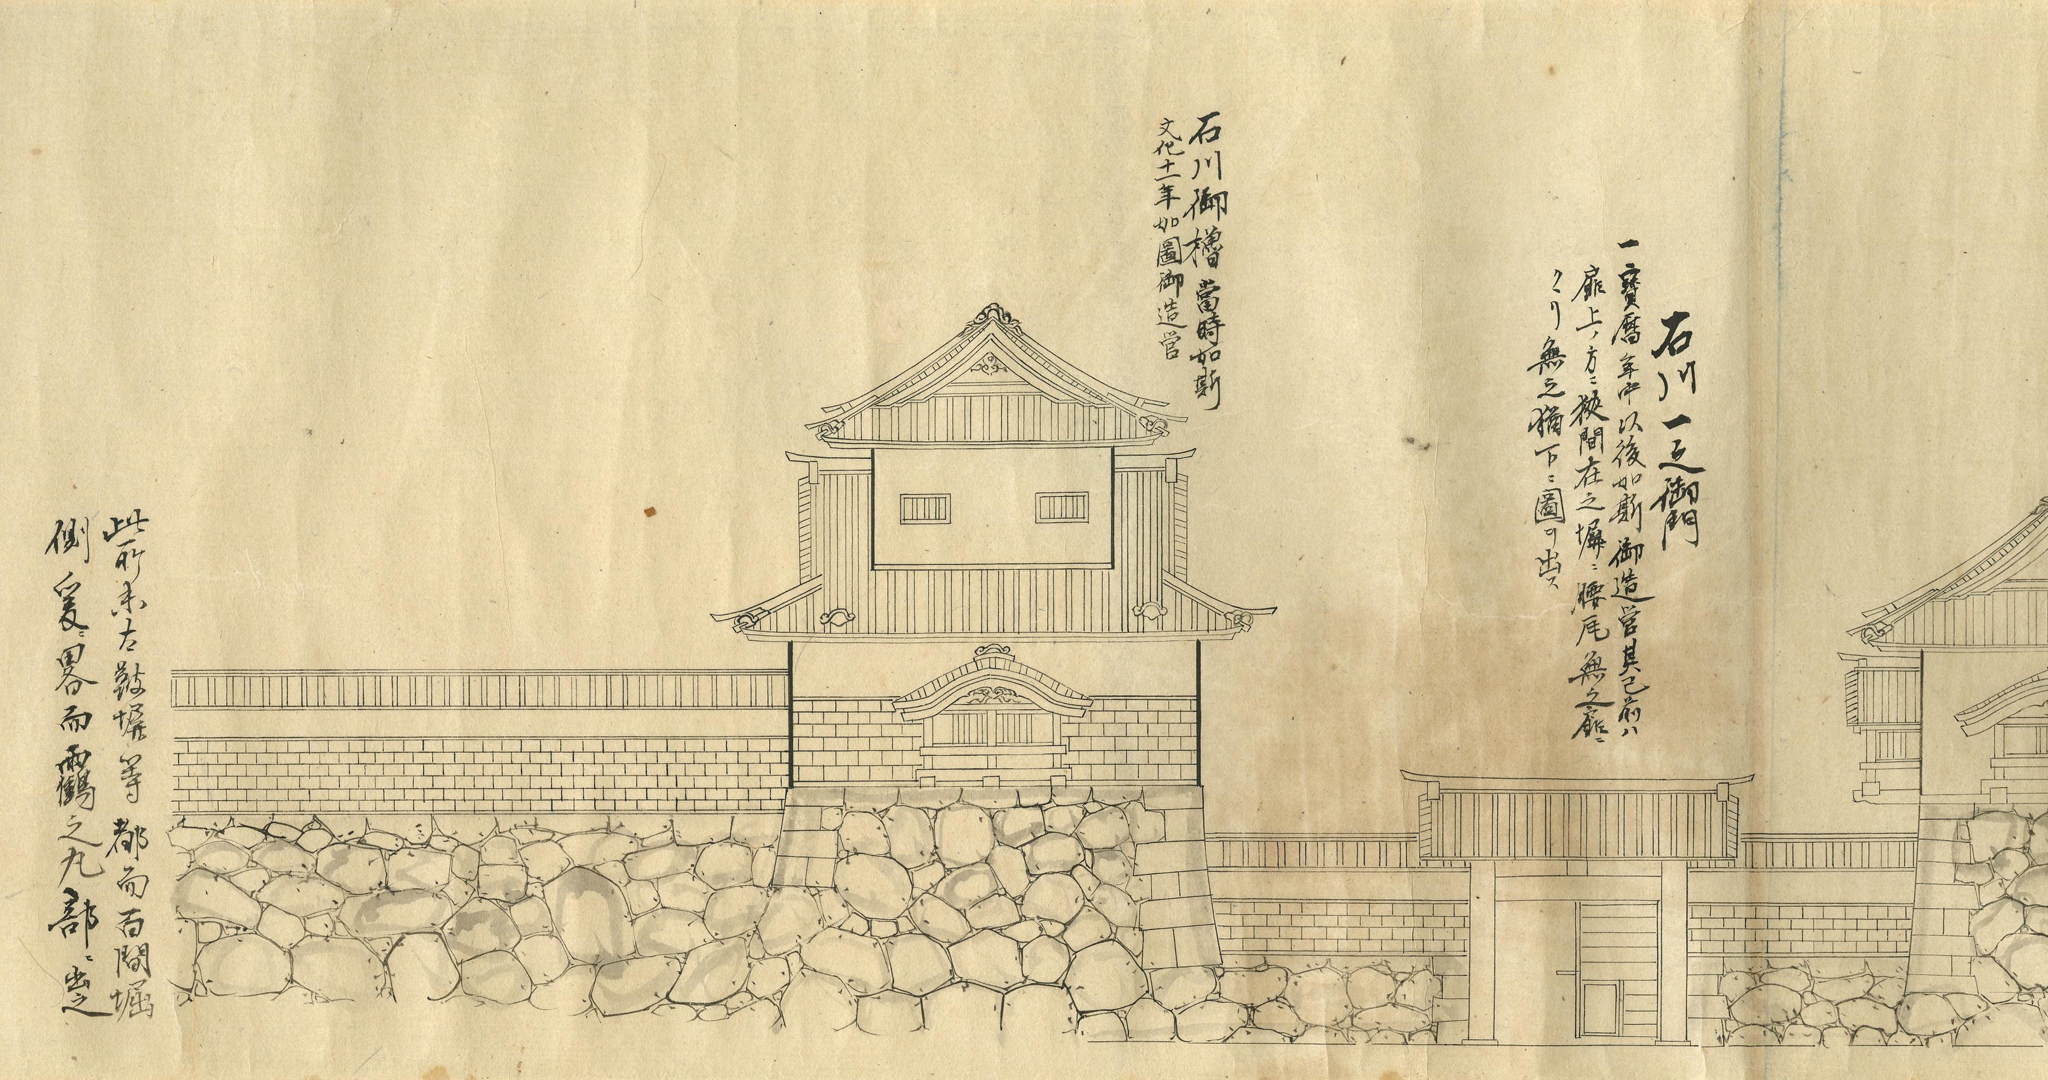 石川一之御門
一寶暦年中以後如斯御造営其已前ハ
扉上ノ方ニ狭間在之塀ニ腰瓦無之扉ニ
クヽリ無之猶下ニ圖ヲ出ス
石川御櫓當時如斯
文化十一年如圖御造営
此所未左鼓塀等都而百間堀
側爰ニ畧而靏之丸部ニ出之